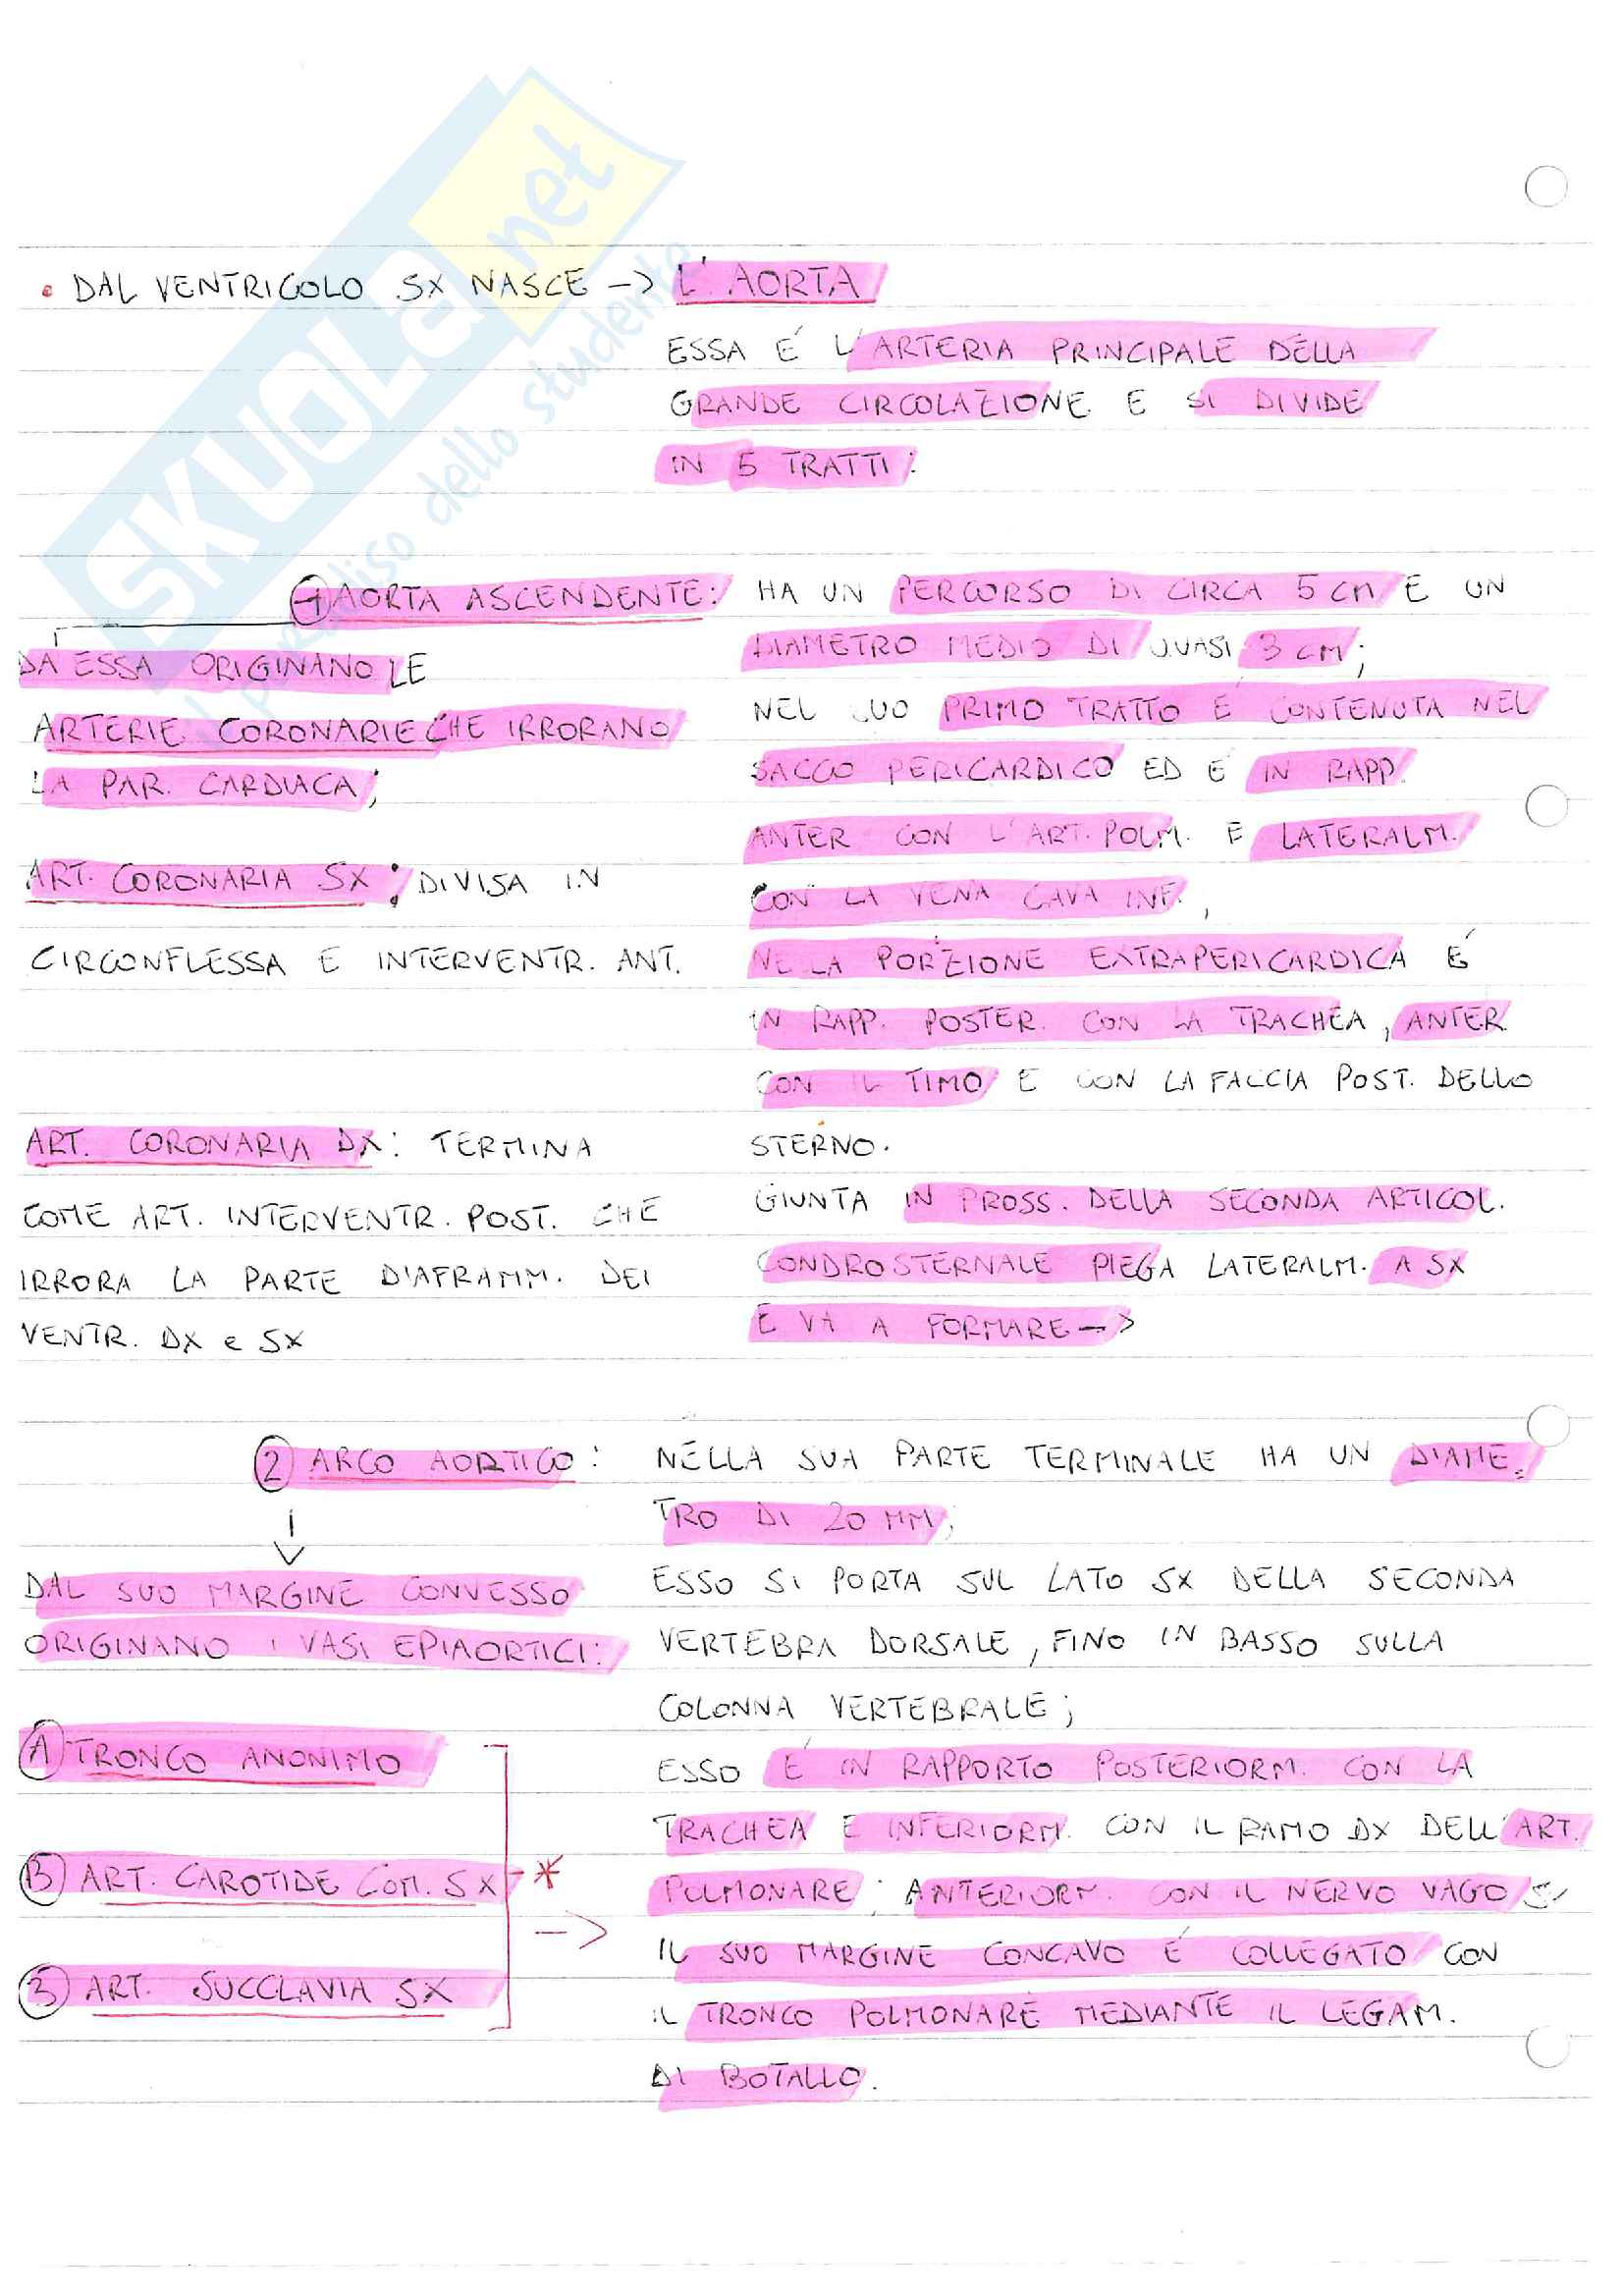 SKUOLA.net
il paradiso dello studente
• DAL VENTRICOLO SX NASCE -> L'AORTA
ESSA É L'ARTERIA PRINCIPALE DELLA
GRANDE CIRCOLAZIONE E SI DIVIDE
IN 5 TRATTI:
1 AORTA ASCENDENTE:
DA ESSA ORIGINANO LE
ARTERIE CORONARIE CHE IRRORANO
LA PAR. CARDIACA;
ART. CORONARIA SX: DIVISA IN
CIRCONFLESSA E INTERVENTR. ANT.
ART. CORONARIA DX: TERMINA
COME ART. INTERVENTR. POST. CHE
IRRORA LA PARTE DIAFRAMM. DEI
VENTR. DX e SX
HA UN PERCORSO DI CIRCA 5 CM E UN
DIAMETRO MEDIO DI QUASI 3 CM;
NEL SUO PRIMO TRATTO É CONTENUTA NEL
SACCO PERICARDICO ED É IN RAPP.
ANTER CON L'ART. POLM. E LATERALM.
CON LA VENA CAVA INF.,
NELLA PORZIONE EXTRAPERICARDICA É
IN RAPP. POSTER. CON LA TRACHEA, ANTER.
CON IL TIMO E CON LA FACCIA POST. DELLO
STERNO.
GIUNTA IN PROSS. DELLA SECONDA ARTICOL.
CONDROSTERNALE PIEGA LATERALM. A SX
E VA A FORMARE ->
2 ARCO AORTICO:
DAL SUO MARGINE CONVESSO
ORIGINANO I VASI EPIAORTICI:
A TRONCO ANONIMO
B ART. CAROTIDE COM. SX *
3 ART. SUCCLAVIA SX ->
NELLA SUA PARTE TERMINALE HA UN DIAME=
TRO DI 20 MM;
ESSO SI PORTA SUL LATO SX DELLA SECONDA
VERTEBRA DORSALE, FINO IN BASSO SULLA
COLONNA VERTEBRALE;
ESSO É IN RAPPORTO POSTERIORM. CON LA
TRACHEA E INFERIORM. CON IL RAMO DX DELL'ART.
POLMONARE; ANTERIORM. CON IL NERVO VAGO
IL SUO MARGINE CONCAVO É COLLEGATO CON
IL TRONCO POLMONARE MEDIANTE IL LEGAM.
DI BOTALLO.